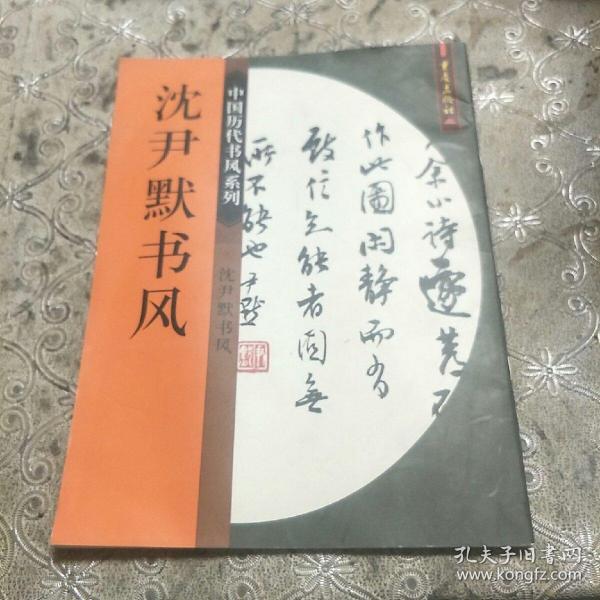 沈尹默书风
中国历代书风系列
沈尹默书风
重庆出版社
余小诗遂书
作此图闲静而有
致信知能者固无
所不能也尹默
孔夫子旧书网
www.kongfz.com